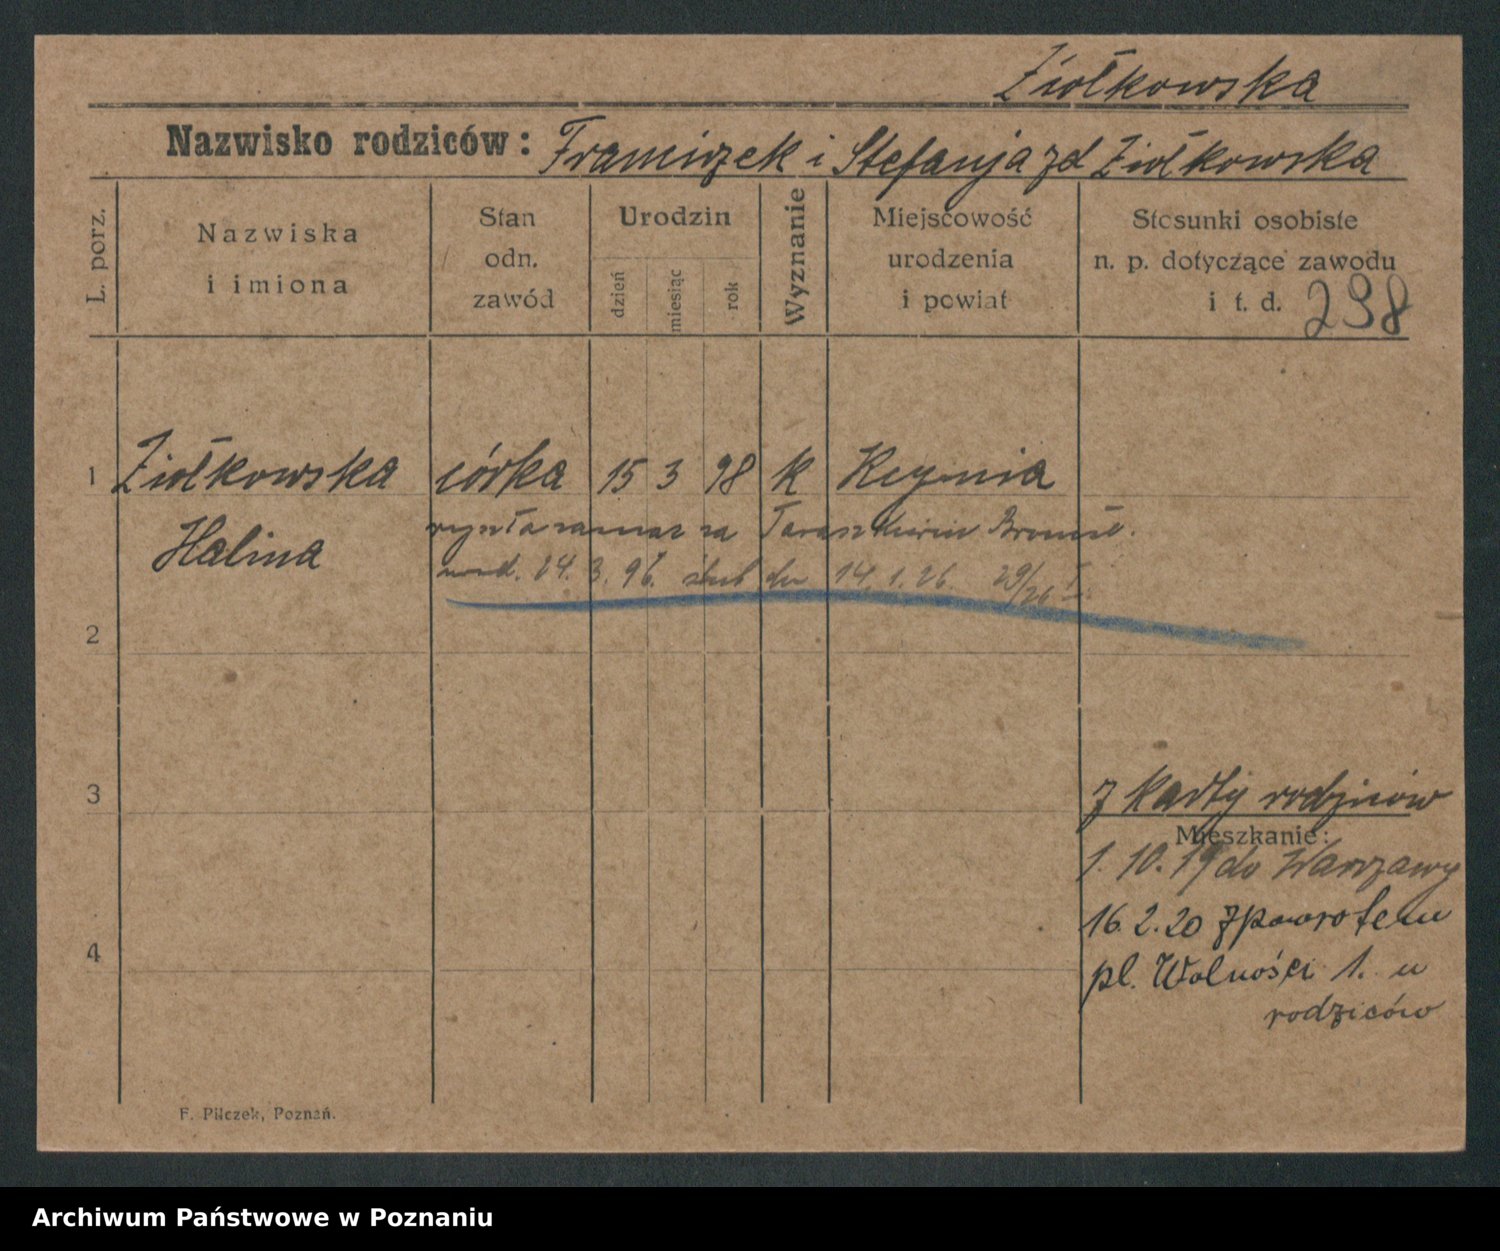 Ziółkowska
Nazwisko rodziców: Franciszek i Stefanja zd Ziółkowska
L. porz.
Nazwiska
i imiona
Stan
odn.
zawód
Urodzin
dzień
miesiąc
rok
Wyznanie
Miejscowość
urodzenia
i powiat
Stosunki osobiste
n. p. dotyczące zawodu
i t. d. 298
1 Ziółkowska córka 15 3 98 k Kcynia
Halina
wyszła zamąż za Bronisł.
urod. 24. 3. 96. ślub dn 14. 1. 26. 29/26 I
2
3
z karty rodziców
Mieszkanie:
1. 10. 19 do Warszawy
16. 2. 20 z powrotem
4
pl. Wolności 1. u
rodziców
F. Pilczek, Poznań.
Archiwum Państwowe w Poznaniu